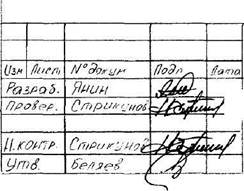 Изм Лист № докум Подп. Дата
Разраб. Янин
Провер. Стрикунов
Н.контр. Стрикунов
Утв. Беляев